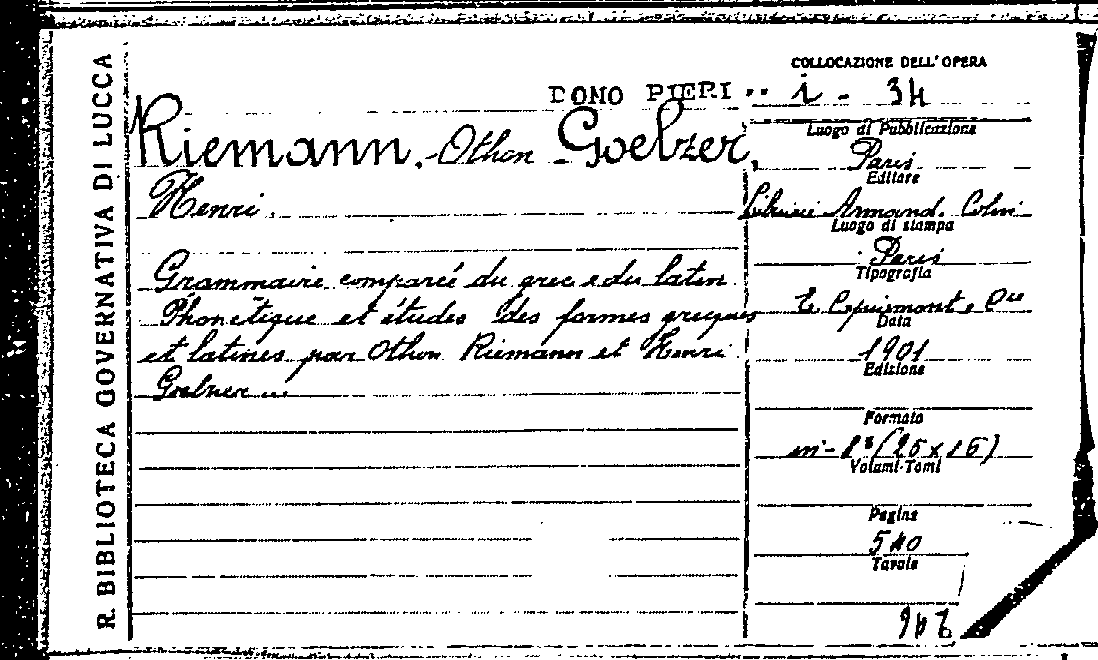 R. BIBLIOTECA GOVERNATIVA DI LUCCA
COLLOCAZIONE DELL'OPERA
DONO PIERI .. i - 34
Riemann, Othon - Goelzer,
Henri.
Grammaire comparée du grec e du latin
Phonétique et études des formes grecques
et latines par Othon Riemann et Henri
Goelzer ...
Luogo di Pubblicazione
Paris
Editore
Librairie Armand Colin
Luogo di stampa
Paris
Tipografia
E. Capiomont, Cie
Data
1901
Edizione
Formato
in-8° (25 x 16)
Volumi-Tomi
Pagine
540
Tavole